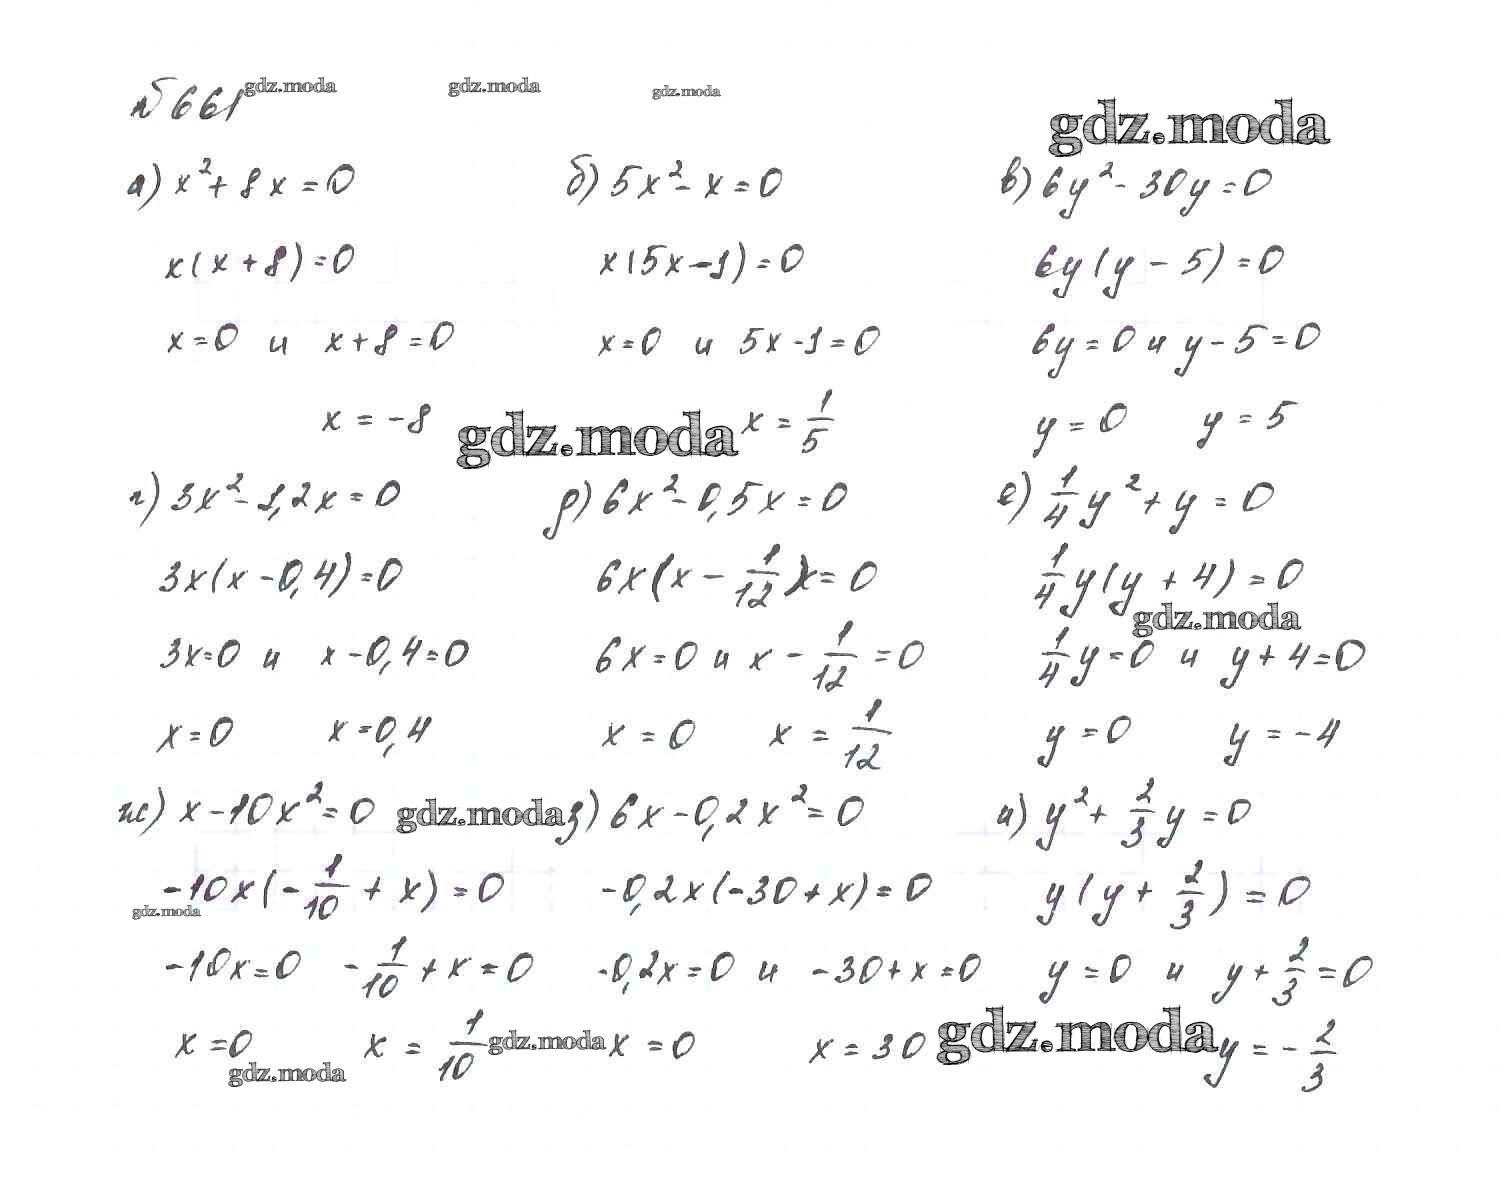 № 661 gdz.moda gdz.moda gdz.moda
gdz.moda
а) x² + 8x = 0 б) 5x² - x = 0 в) 6y² - 30y = 0
x(x + 8) = 0 x(5x - 1) = 0 6y(y - 5) = 0
x = 0 и x + 8 = 0 x = 0 и 5x - 1 = 0 6y = 0 и y - 5 = 0
x = -8 gdz.moda x = 1/5 y = 0 y = 5
г) 3x² - 1,2x = 0 д) 6x² - 0,5x = 0 е) 1/4 y² + y = 0
3x(x - 0,4) = 0 6x(x - 1/12) = 0 1/4 y(y + 4) = 0
gdz.moda
3x = 0 и x - 0,4 = 0 6x = 0 и x - 1/12 = 0 1/4 y = 0 и y + 4 = 0
x = 0 x = 0,4 x = 0 x = 1/12 y = 0 y = -4
ж) x - 10x² = 0 gdz.moda з) 6x - 0,2x² = 0 и) y² + 2/3 y = 0
-10x(-1/10 + x) = 0 -0,2x(-30 + x) = 0 y(y + 2/3) = 0
gdz.moda
-10x = 0 -1/10 + x = 0 -0,2x = 0 и -30 + x = 0 y = 0 и y + 2/3 = 0
x = 0 x = 1/10 gdz.moda x = 0 x = 30 gdz.moda y = -2/3
gdz.moda